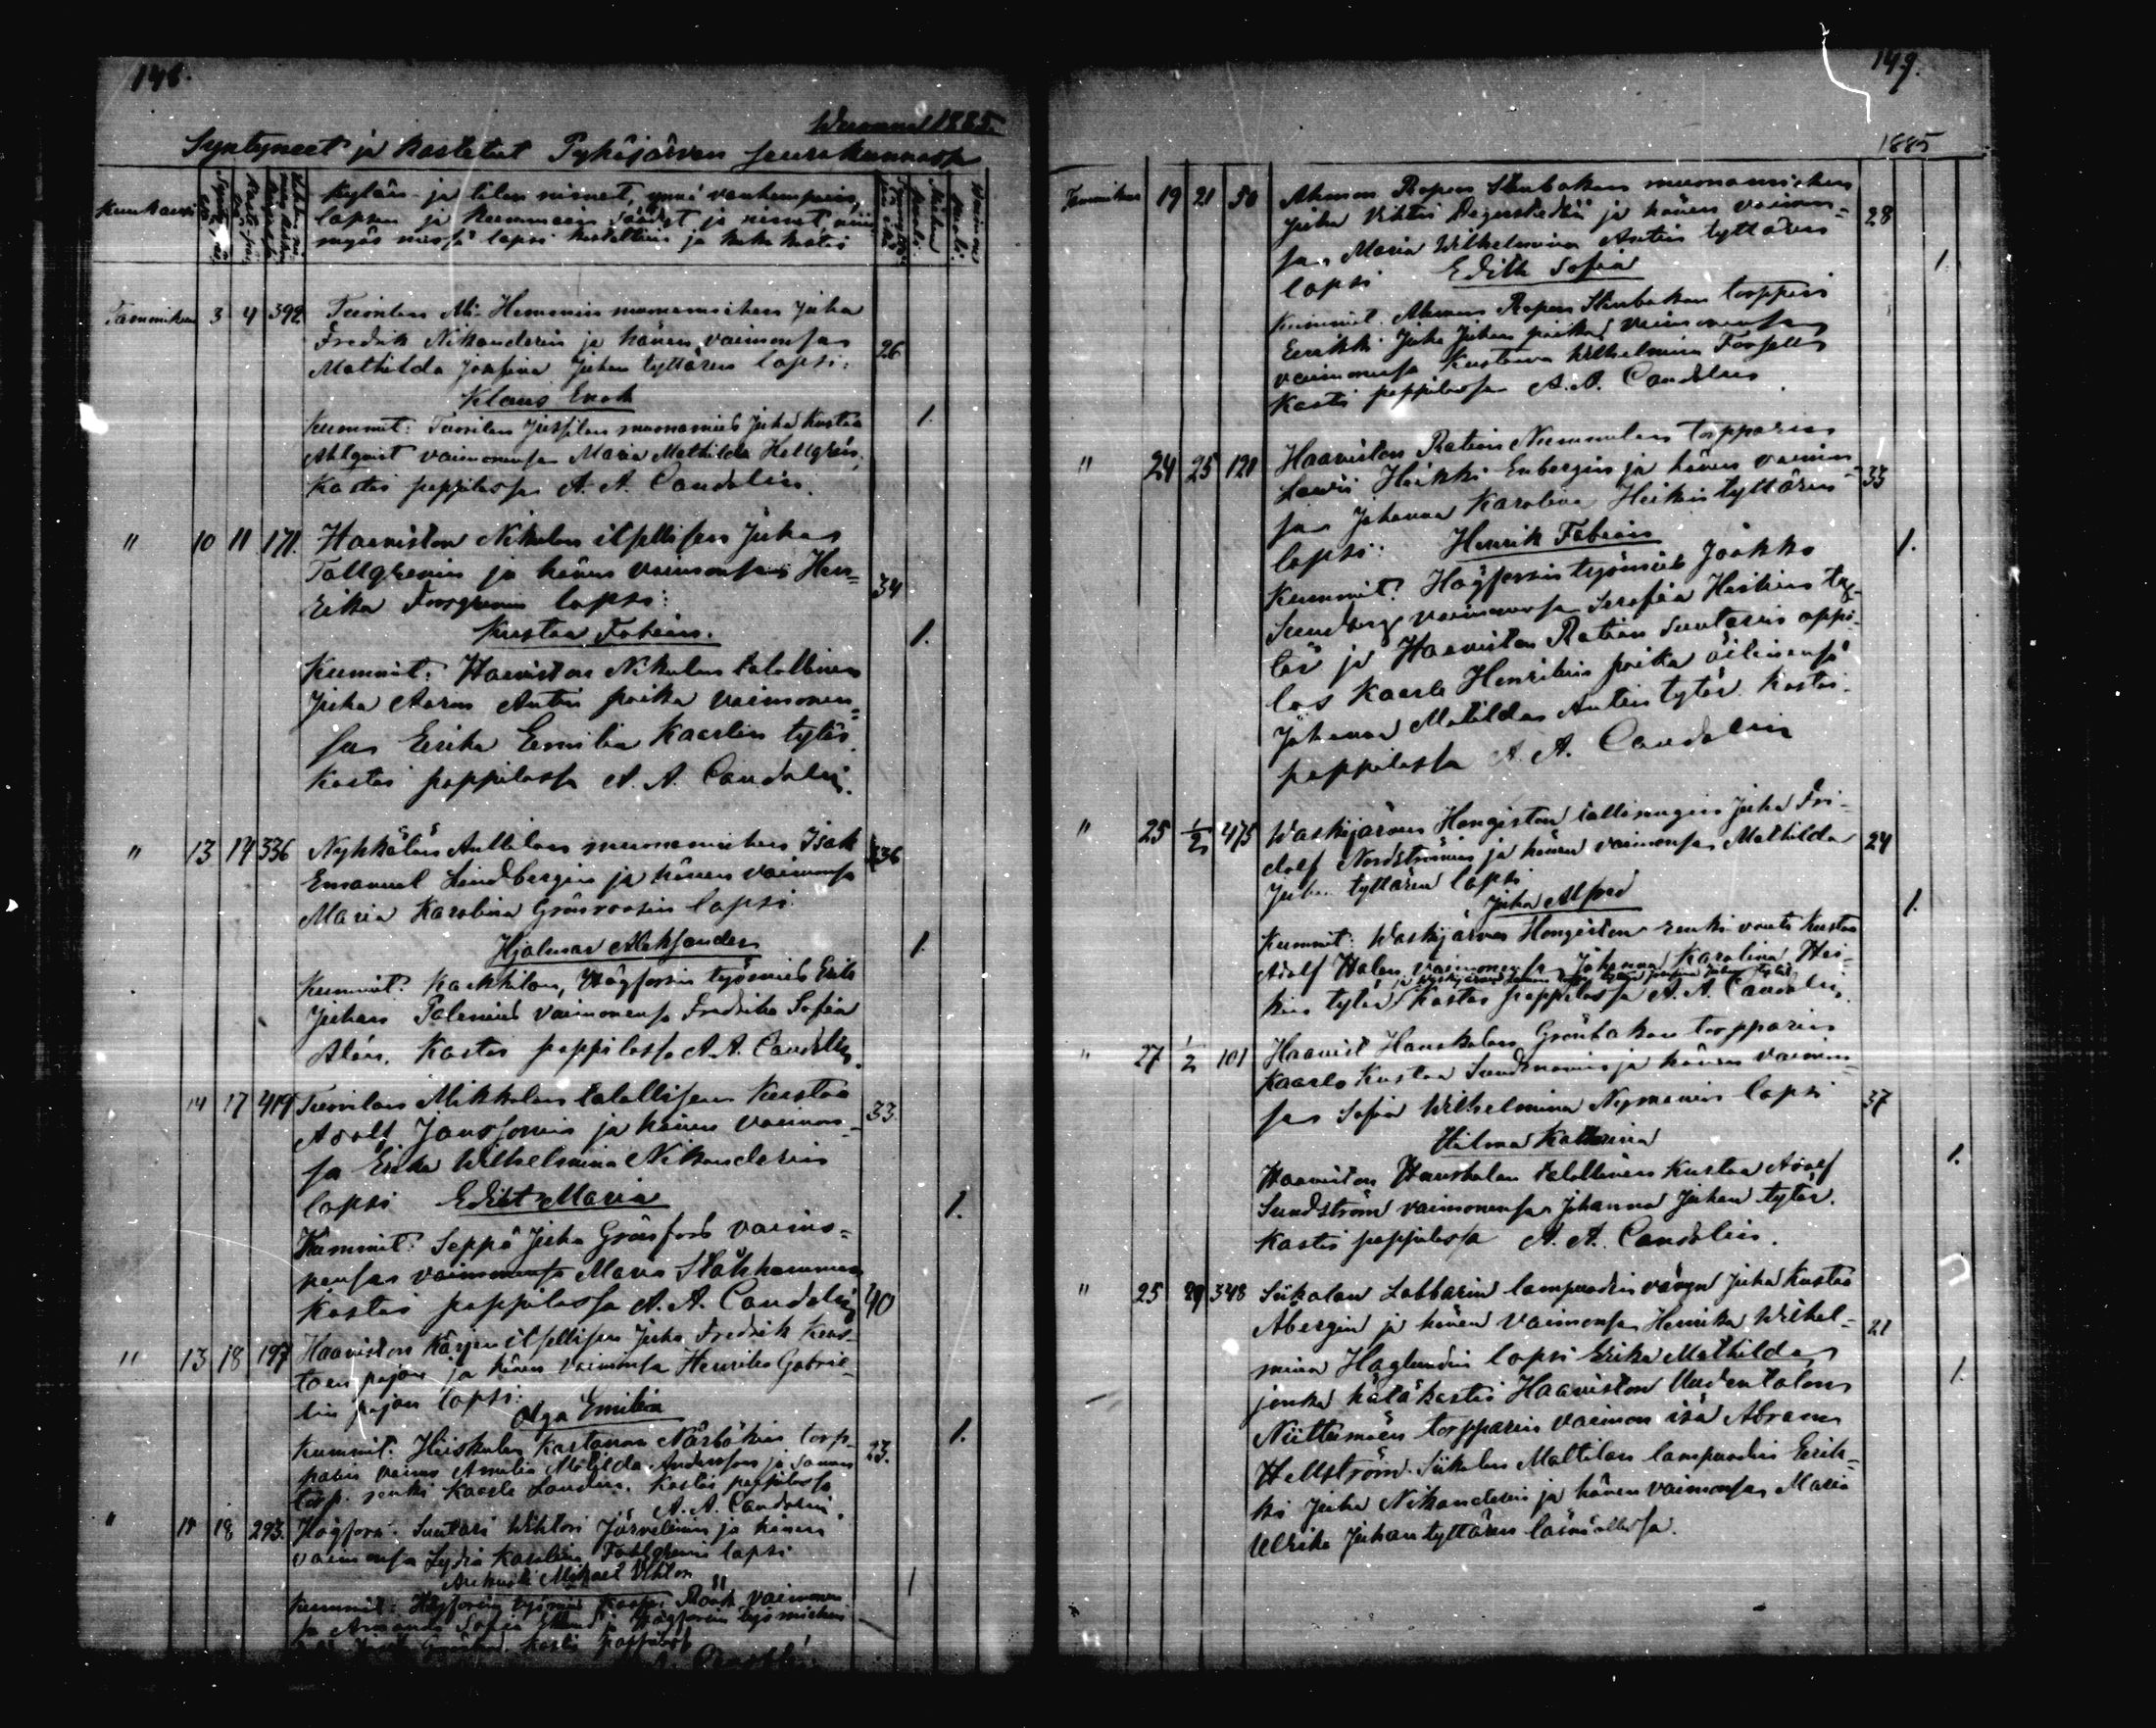 148.
Wuonna 1885.
Syntyneet ja kastetut Pyhäjärven seurakunnassa
Kuukausi
Kylän- ja tilan nimet, ynnä vanhempain,
lapsen ja kummein säädyt ja nimet, niin
myös missä lapsi kastettiin ja kuka kasti
Tammikuu 3 4 392 Tuorilan Ali-Hemmin muonamiehen Juha
Fredrik Nikanderin ja hänen vaimonsa 26
Mathilda Josefina Juhan tyttären lapsi:
Klaus Enok
Kummit: Tuorilan Jussilan muonamies Juha Kustaa 1.
Ahlqvist vaimonensa Maria Mathilda Hellgrén.
Kasti pappilassa A. A. Candolin.
" 10 11 171. Haaviston Nikulan itsellisen Juha
Tallgrenin ja hänen vaimonsa Hen=
rika Forsgrenin lapsi: 34
Kustaa Fabian. 1.
Kummit: Haaviston Nikulan talollinen
Juha Aaron Antin poika vaimonen=
sa Eerika Emilia Kaarlen tytär.
Kasti pappilassa A. A. Candolin.
" 13 14 336 Nyhkälän Anttilan muonamiehen Isak 36
Emanuel Lindbergin ja hänen vaimonsa
Maria Karolina Grönroosin lapsi.
Hjalmar Aleksander 1.
Kummit: Kaukkilan, Högforsin työmies Erik
Juhan Palenius vaimonensa Fredrika Sofia
Alén. Kasti pappilassa A. A. Candolin.
14 17 419 Tuorilan Mikkolan talollisen Kustaa 33.
Adolf Janssonin ja hänen vaimon-
sa Erika Wilhelmina Nikanderin
lapsi Edit Maria 1.
Kummit: Seppä Juha Grönfors vaimo=
nensa Maria Stålhammar
Kasti pappilassa A. A. Candolin 40
" 13 18 197 Haaviston itsellisen Juha Fredrik Kus-
taan pojan ja hänen vaimonsa Henrika Gabrie-
lin pojan lapsi:
Olga Emilia 1.
Kummit: Hiiskulan Kartanon torp-
parin vaimo Amalia Matilda Andersson ja saman 23.
torp. renki Kaarle Lander. Kasti pappilassa
A. A. Candolin.
" 18 293. Högfors. Suutari Wihtori Järvelinin ja hänen
vaimonsa Lydia Karolina Fahlgrenin lapsi
Mikael Wihtori 1
Kummit: Högforsin työmies Röök vaimonen
sa Amanda Sofia ja Högforsin työmiehen
Kasti pappilassa
149.
1885
Tammikuu 19 21 50 Ahmon Ropen Stenbakan muonamiehen
Juha Vihtori Degerstedtin ja hänen vaimon= 28
sa Maria Wilhelmina Antin tyttären
lapsi Edith Sofia 1.
Kummit. Ahmon Ropen Stenbakan torppari
Eerikki Juha Juhan poika vaimonensa
vaimonensa Kustaava Wilhelmina Forsell
Kasti pappilassa A. A. Candolin
" 24 25 121 Haaviston Ratian Nummelan torpparin
Lauri Heikki Enbergin ja hänen vaimon 33
sa Johanna Karolina Heikin tyttären
lapsi: Henrik Fabian 1.
Kummit: Högforsin työmies Jaakko
Sundberg vaimonensa Serafia Heikin ty-
tär ja Haaviston Ratian Suutarin oppi-
las Kaarle Henrikin poika äitinensä
Johanna Matilda Antin tytär. Kasti
pappilassa A. A. Candolin
" 25 1/2 475 Waskijärven Hongiston tallirengin Juha Fri-
dolf Nordströmin ja hänen vaimonsa Mathilda 24
Juhan tyttären lapsi
Juha Alfred 1.
Kummit: Waskijärven Hongiston renki vouti Kustaa
Adolf Walen vaimonensa Johanna Karolina Hei-
kin tytär Kasti pappilassa A. A. Candolin.
" 27 1/2 101 Haavist Hauskalan Grönbakan torpparin
Kaarlo Kustaa Sundmanin ja hänen vaimon=
sa Sofia Wilhelmina Nymanin lapsi 37
Hilma Katarina 1.
Haaviston Hauskalan talollinen Kustaa Adolf
Sundström vaimonensa Johanna Juhan tytär.
Kasti pappilassa A. A. Candolin.
" 25 29 348 Siikalan Labbarin lampuodin vävyn Juha Kustaa
Åbergin ja hänen vaimonsa Henrika Wilhel= 21
mina Haglundin lapsi Erika Mathilda, 1.
jonka hätäkasti Haaviston Uudentalon
Niittumäen torpparin vaimon isä Abram
Hellström. Siikalan Mattilan lampuodin Eerik=
ki Juha Nikanderin ja hänen vaimonsa Maria
Ulrika Juhan tyttären läsnäollessa.